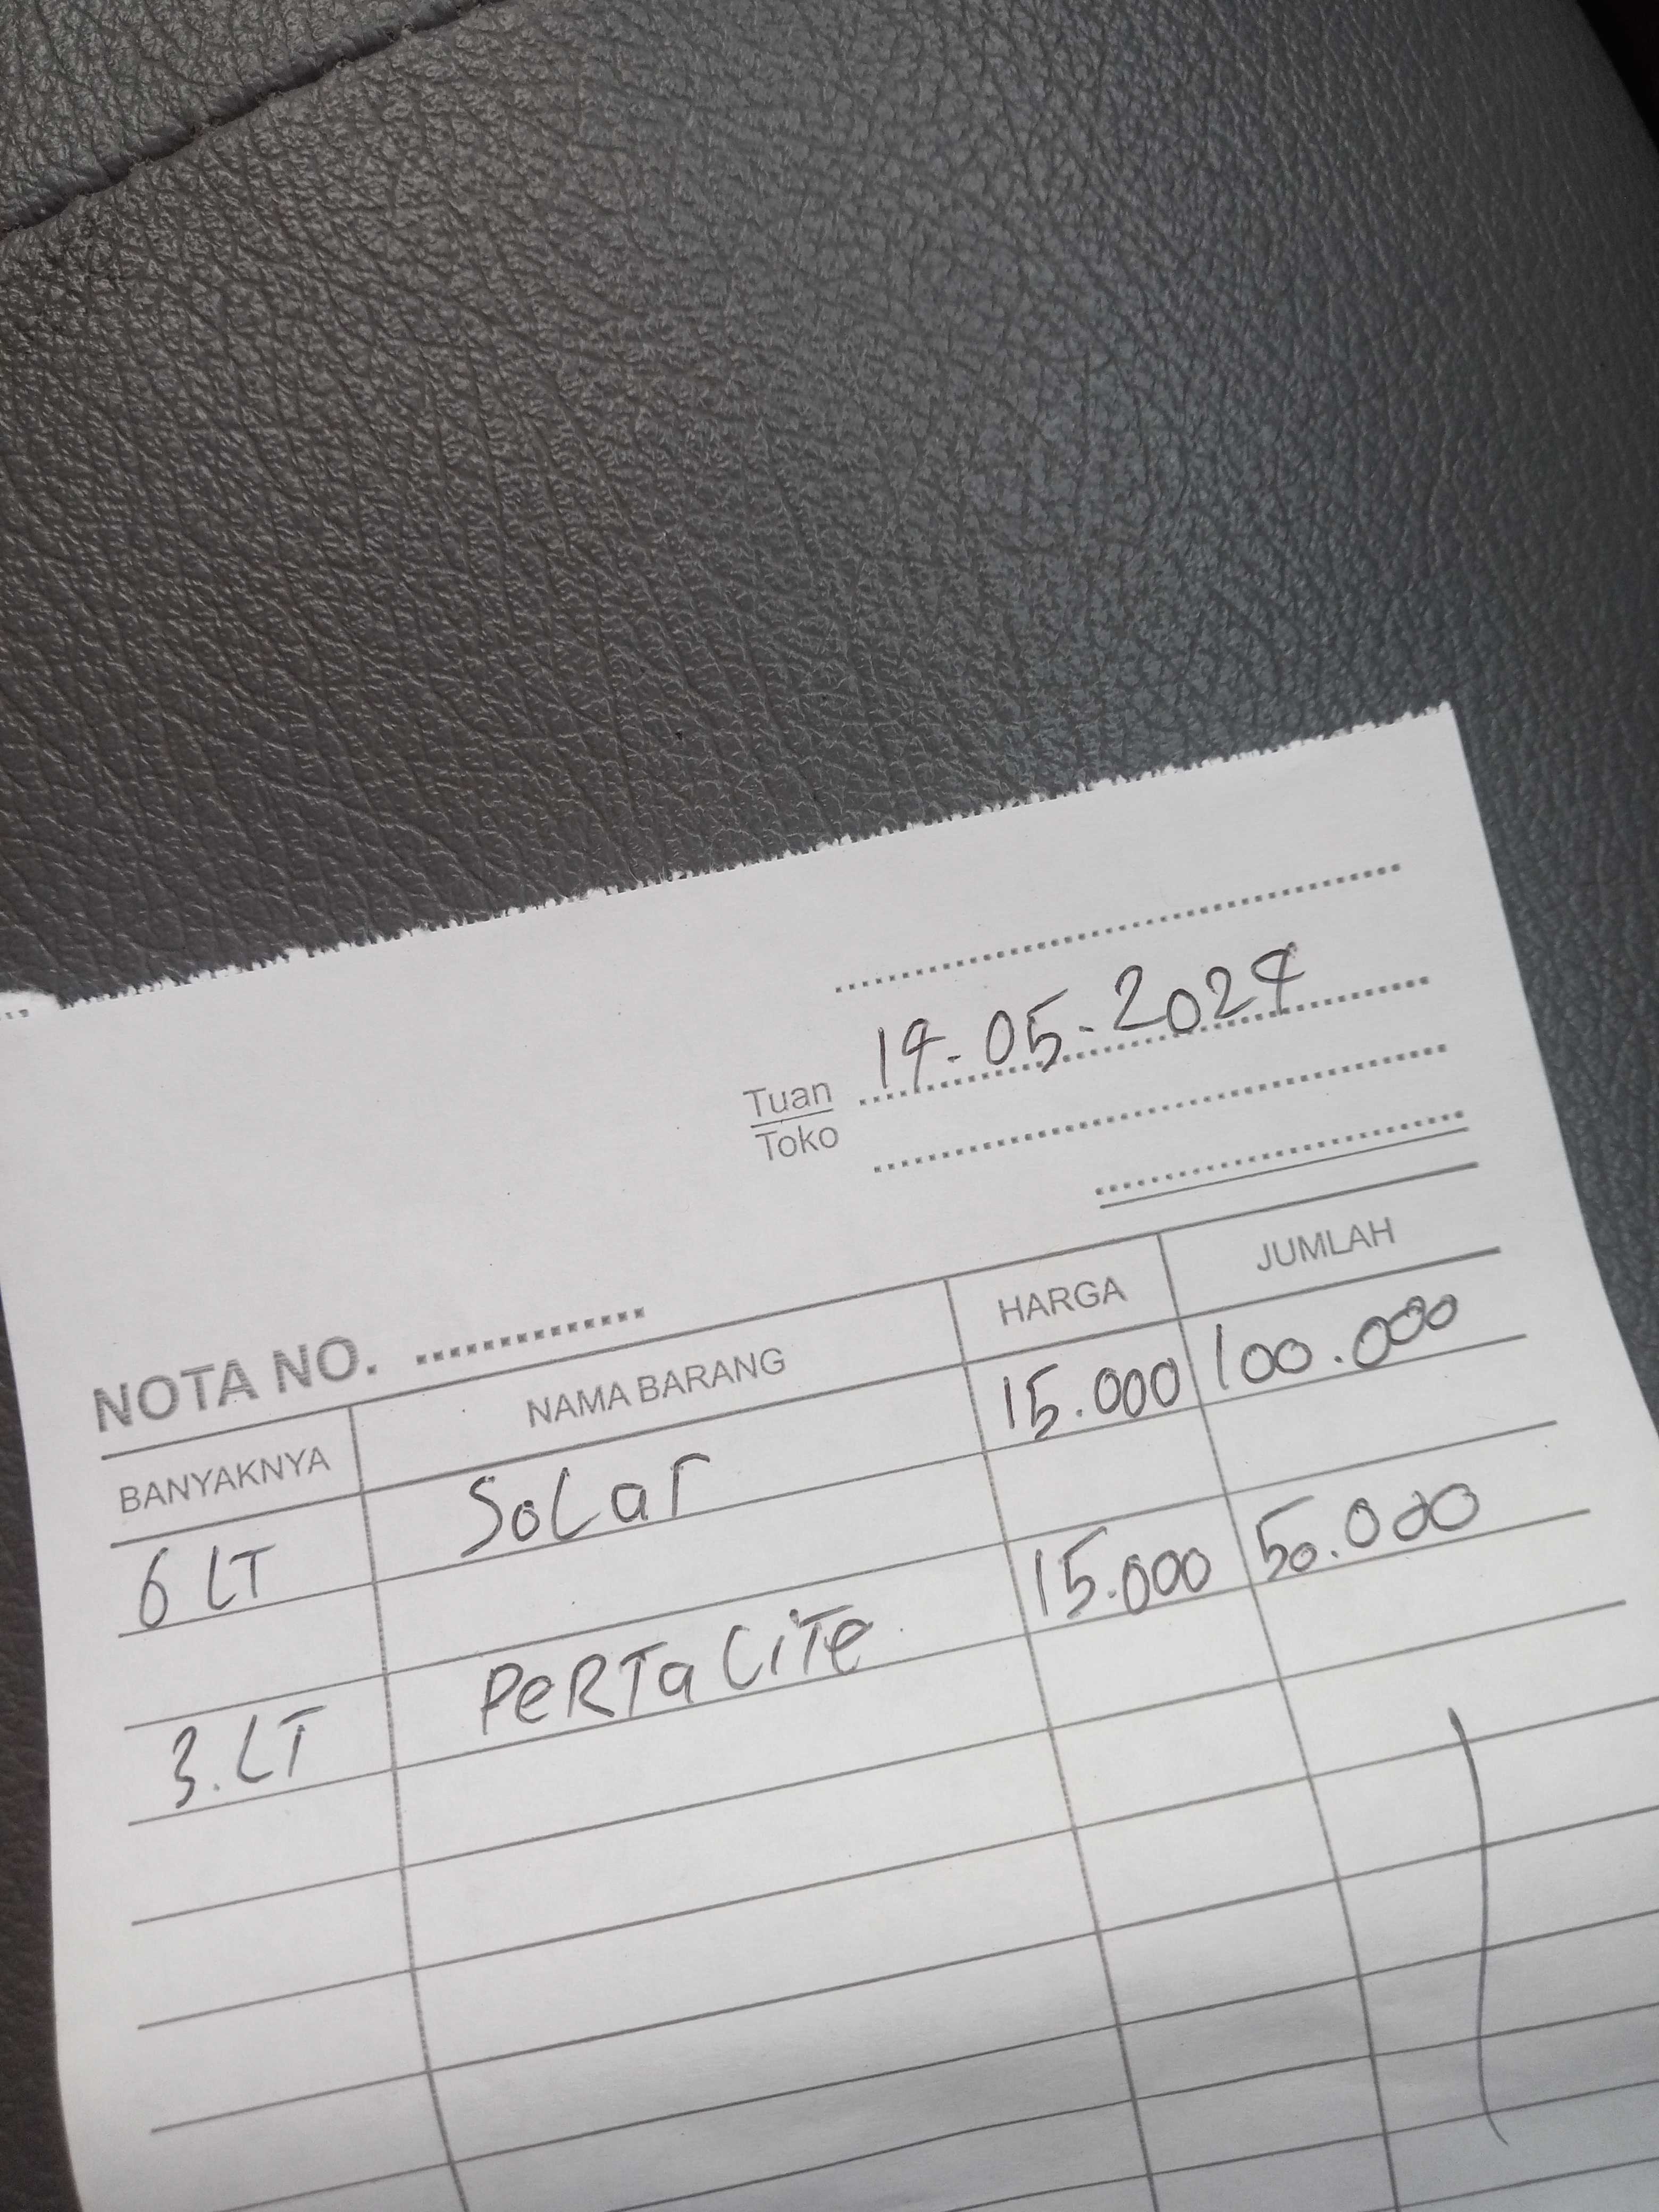 19-05-2024
Tuan
Toko
NOTA NO.
BANYAKNYA NAMA BARANG HARGA JUMLAH
6 LT SoLar 15.000 100.000
3.LT PeRTaLiTe 15.000 50.000